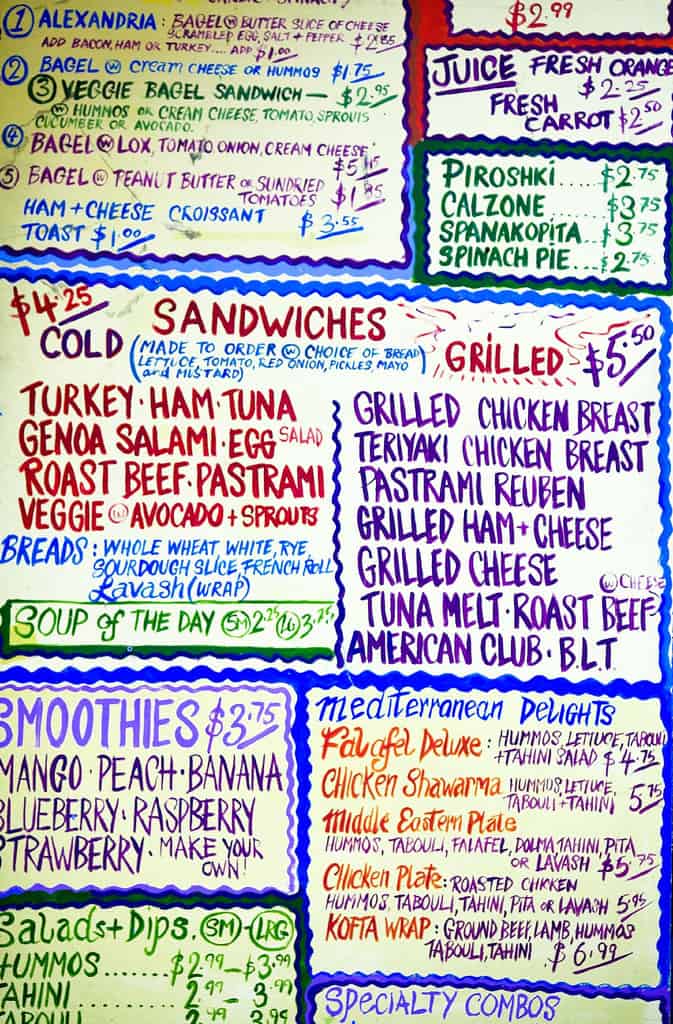 ① ALEXANDRIA : BAGEL ⓦ BUTTER SLICE OF CHEESE
SCRAMBLED EGG, SALT + PEPPER
ADD BACON, HAM OR TURKEY.... ADD $1.00
② BAGEL ⓦ CREAM CHEESE OR HUMMOS $1.75
③ VEGGIE BAGEL SANDWICH — $2.95
ⓦ HUMMOS OR CREAM CHEESE, TOMATO, SPROUTS
CUCUMBER OR AVOCADO.
④ BAGEL ⓦ LOX, TOMATO ONION, CREAM CHEESE
⑤ BAGEL ⓦ PEANUT BUTTER OR SUNDRIED
TOMATOES
HAM + CHEESE CROISSANT $3.55
TOAST $1.00
$2.99
JUICE FRESH ORANGE
$2.25
FRESH
CARROT $2.50
PIROSHKI.... $2.75
CALZONE ..... $3.75
SPANAKOPITA... $3.75
SPINACH PIE... $2.75
$4.25 SANDWICHES
COLD (MADE TO ORDER ⓦ CHOICE OF BREAD
LETTUCE, TOMATO, RED ONION, PICKLES, MAYO
and MUSTARD)
GRILLED $5.50
TURKEY · HAM · TUNA
GENOA SALAMI · EGG SALAD
ROAST BEEF · PASTRAMI
VEGGIE ⓦ AVOCADO + SPROUTS
BREADS : WHOLE WHEAT, WHITE, RYE,
SOURDOUGH SLICE, FRENCH ROLL
Lavash (WRAP)
SOUP of THE DAY SM 2.25 LG 3.25
GRILLED CHICKEN BREAST
TERIYAKI CHICKEN BREAST
PASTRAMI REUBEN
GRILLED HAM + CHEESE
GRILLED CHEESE
ⓦ CHEESE
TUNA MELT · ROAST BEEF
AMERICAN CLUB · B.L.T.
SMOOTHIES $3.75
MANGO · PEACH · BANANA
BLUEBERRY · RASPBERRY
STRAWBERRY · MAKE YOUR
OWN!
Salads + Dips. SM - LRG
HUMMOS ....... $2.99 - $3.99
TAHINI .......... 2.99 - 3.99
TABOULI 2.99 3.99
mediterranean DELIGHTS
Falafel Deluxe : HUMMOS, LETTUCE, TABOULI
+ TAHINI SALAD $4.75
CHICKEN Shawarma HUMMUS, LETTUCE,
TABOULI + TAHINI 5.75
middle Eastern Plate
HUMMUS, TABOULI, FALAFEL, DOLMA TAHINI, PITA
OR LAVASH $5.75
Chicken Plate: ROASTED CHICKEN
HUMMOS, TABOULI, TAHINI, PITA OR LAVASH 5.95
KOFTA WRAP : GROUND BEEF, LAMB, HUMMOS
TABOULI, TAHINI $6.99
SPECIALTY COMBOS